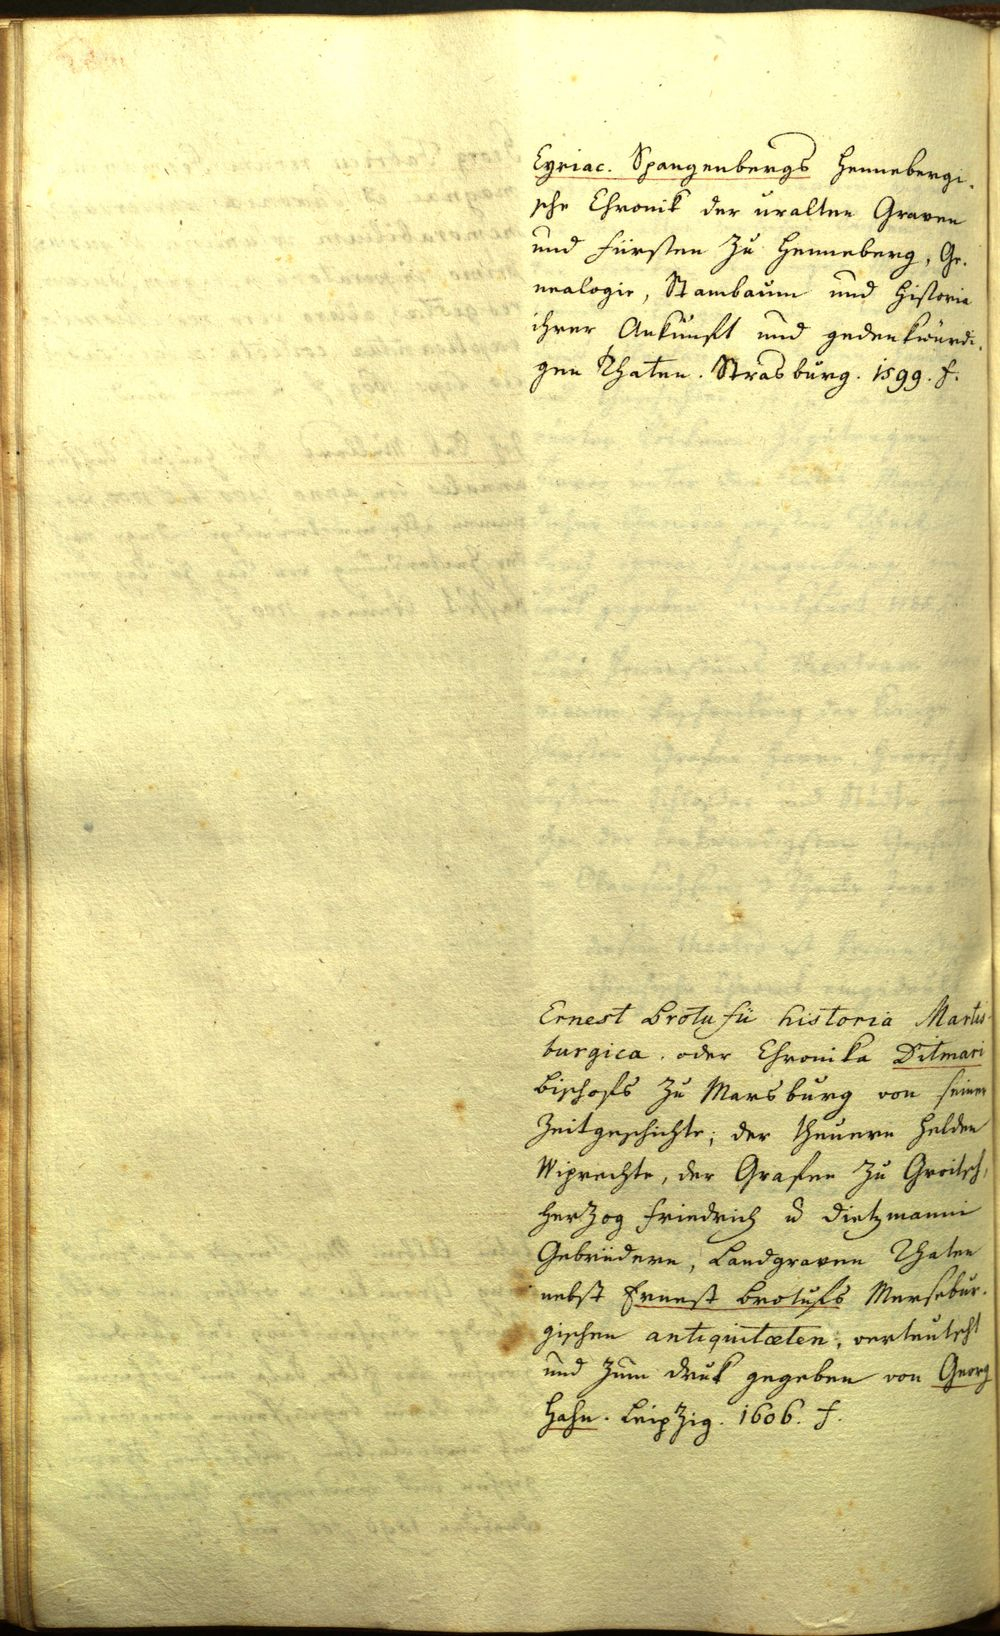 Cyriac. Spangenbergs Hennebergi-
sche Chronik der uralten Graven
und Fürsten zu Henneberg, Ge-
nealogie, Stambaum und Historie
ihrer Ankunft und gedenkwürdi-
gen Thaten. Strasburg. 1599. f.
Ernest Brotufii historia Martis-
burgica. oder Chronika Ditmari
Bischofs zu Marsburg von seiner
Zeitgeschichte; der theuern Helden
Wiprechte, der Grafen zu Groitsch,
Herzog Friedrich u Dietzmanni
Gebrüdern, Landgraven Thaten
nebst Ernest Brotufs Mersebur-
gischen antiquitæten, verteutscht
und zum Druk gegeben von Georg
Hahn. Leipzig. 1606. f.